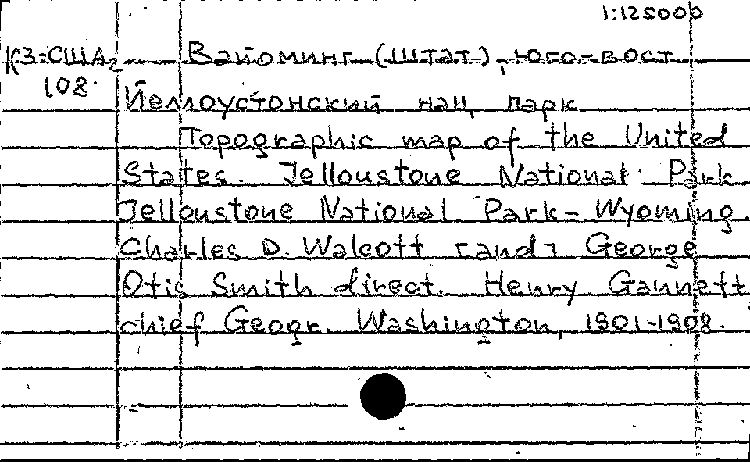 1:125000
К3-США Вайоминг (штат), юго-вост
108 Йеллоустонский нац. парк
Topographic map of the United
States. Jelloustone National Park
Jelloustone National Park - Wyoming
Charles D. Walcott [and] George
Otis Smith direct. Henry Gannett
chief Geogr. Washington, 1901-1908.